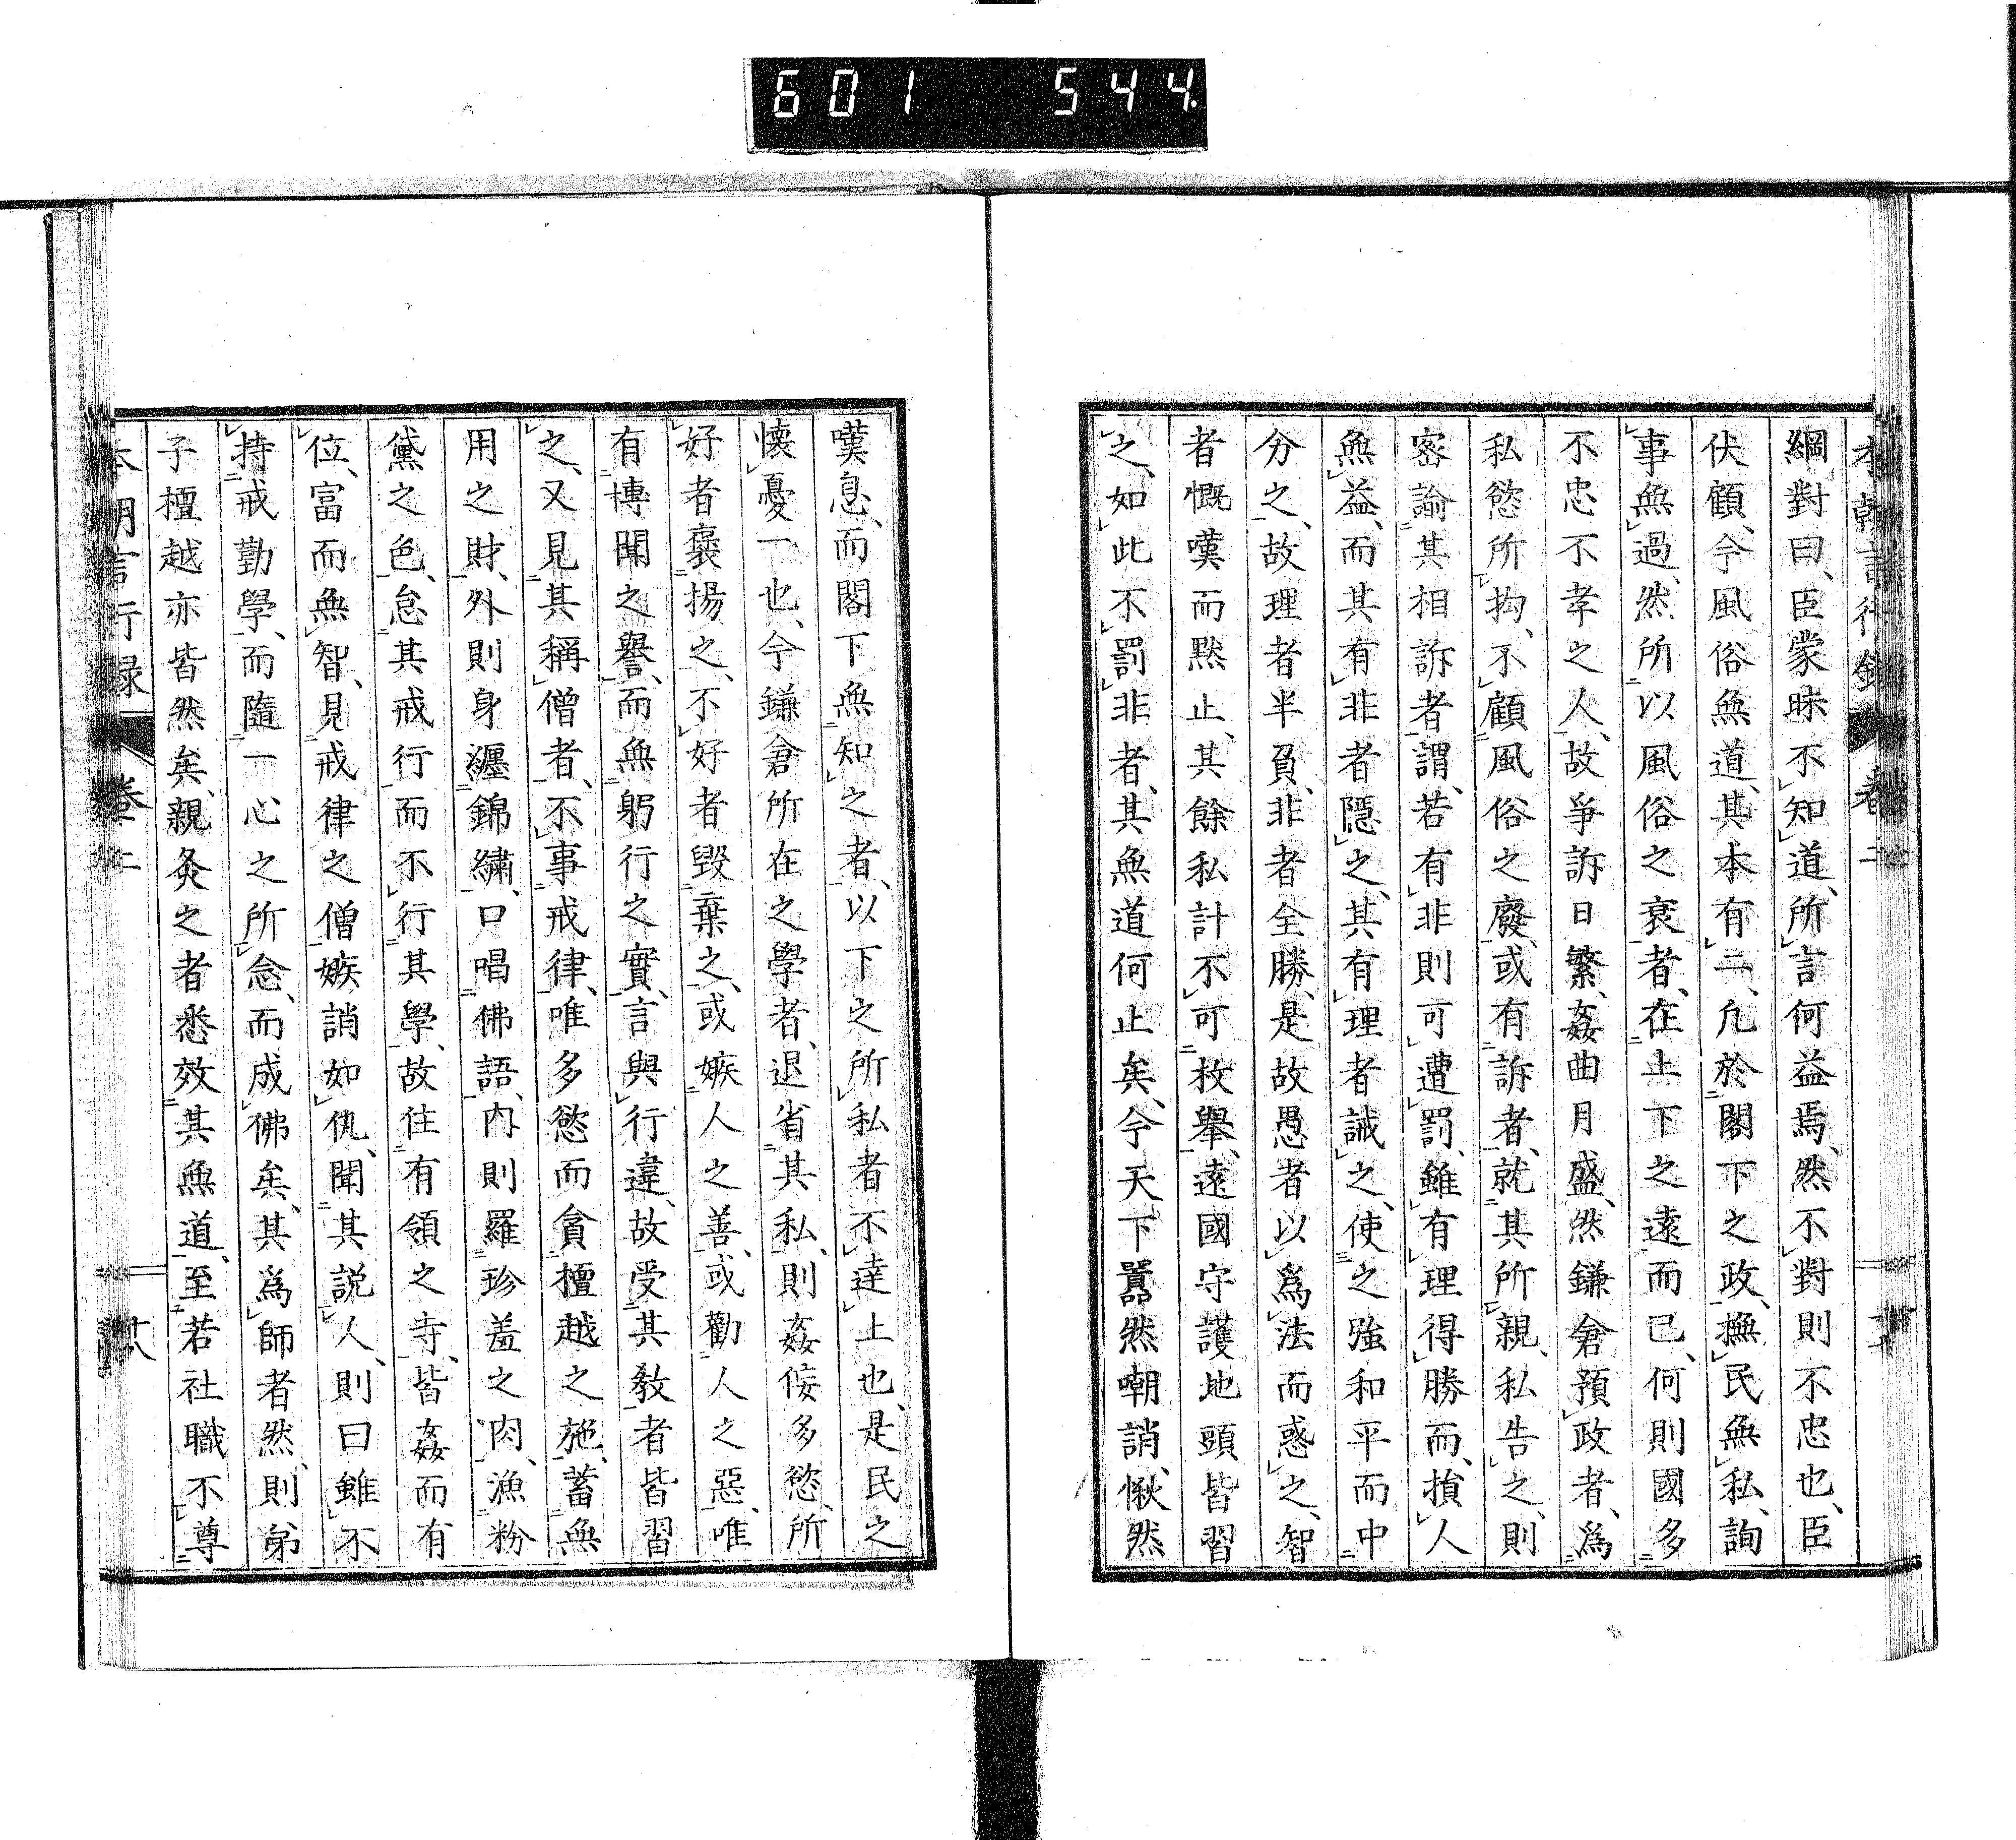 601 544
本朝言行錄 卷二
綱對曰、臣蒙昧不知道、所言何益焉、然不對則不忠也、臣
伏顧、今風俗無道、其本有二、凡於閣下之政、撫民無私、詢
事無過、然所以風俗之衰者、在上下之遠而已、何則國多
不忠不孝之人、故爭訴日繁、姦曲月盛、然鎌倉預政者、爲
私慾所拘、不顧風俗之廢、或有訴者、就其所親、私告之、則
密諭其相訴者謂、若有非則可遭罰、雖有理得勝而、損人
無益、而其有非者隱之、其有理者誡之、使之強和平而中
分之、故理者半負、非者全勝、是故愚者以爲法而惑之、智
者慨嘆而默止、其餘私計不可枚舉、遠國守護地頭皆習
之、如此不罰非者、其無道何止矣、今天下囂然嘲誚、愀然
嘆息、而閣下無知之者、以下之所私者不達上也、是民之
懷憂一也、今鎌倉所在之學者、退省其私、則姦佞多慾、所
好者褒揚之、不好者毀棄之、或嫉人之善、或勸人之惡、唯
有博聞之譽、而無躬行之實、言與行違、故受其教者皆習
之、又見其稱僧者、不事戒律、唯多慾而貪檀越之施、蓄無
用之財、外則身纏錦繡、口唱佛語、內則羅珍羞之肉、漁粉
黛之色、怠其戒行而不行其學、故住有領之寺、皆姦而有
位、富而無智、見戒律之僧嫉誚如仇、聞其說人、則曰雖不
持戒勤學、而隨一心之所念、而成佛矣、其爲師者然、則弟
子檀越亦皆然矣、親炙之者悉效其無道、至若社職不尊
本朝言行錄 卷二 廿八